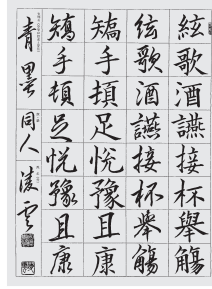 絃歌酒讌接杯舉觴
絃歌酒讌接杯舉觴
矯手頓足悅豫且康
矯手頓足悅豫且康
青墨同人
凌雲